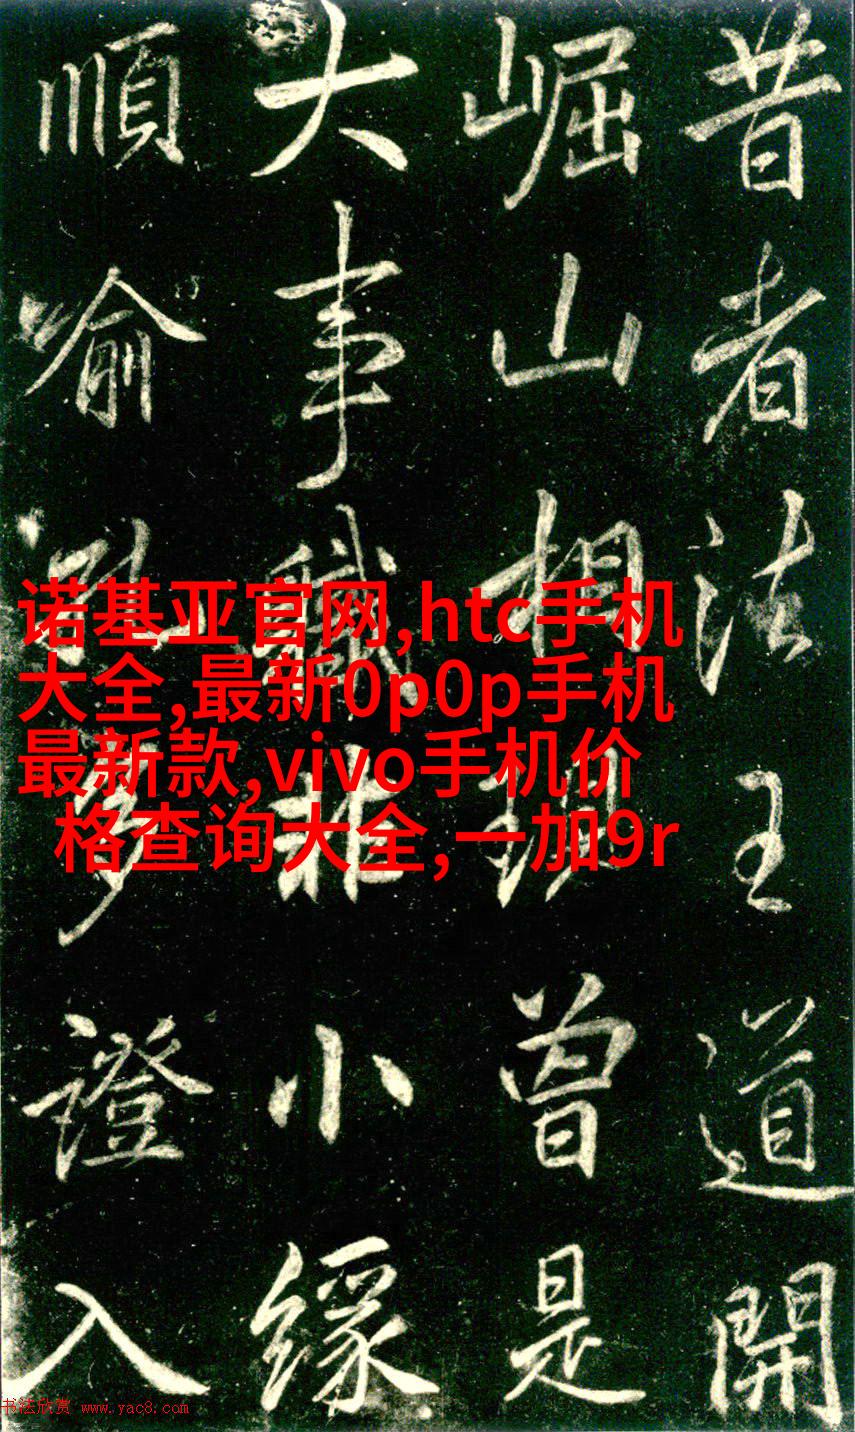 昔者法王道開
崛山相現曾是
大事非小緣
順喻多證入
诺基亚官网,htc手机
大全,最新0p0p手机
最新款,vivo手机价
格查询大全,一加9r
书法欣赏 www.yac8.com